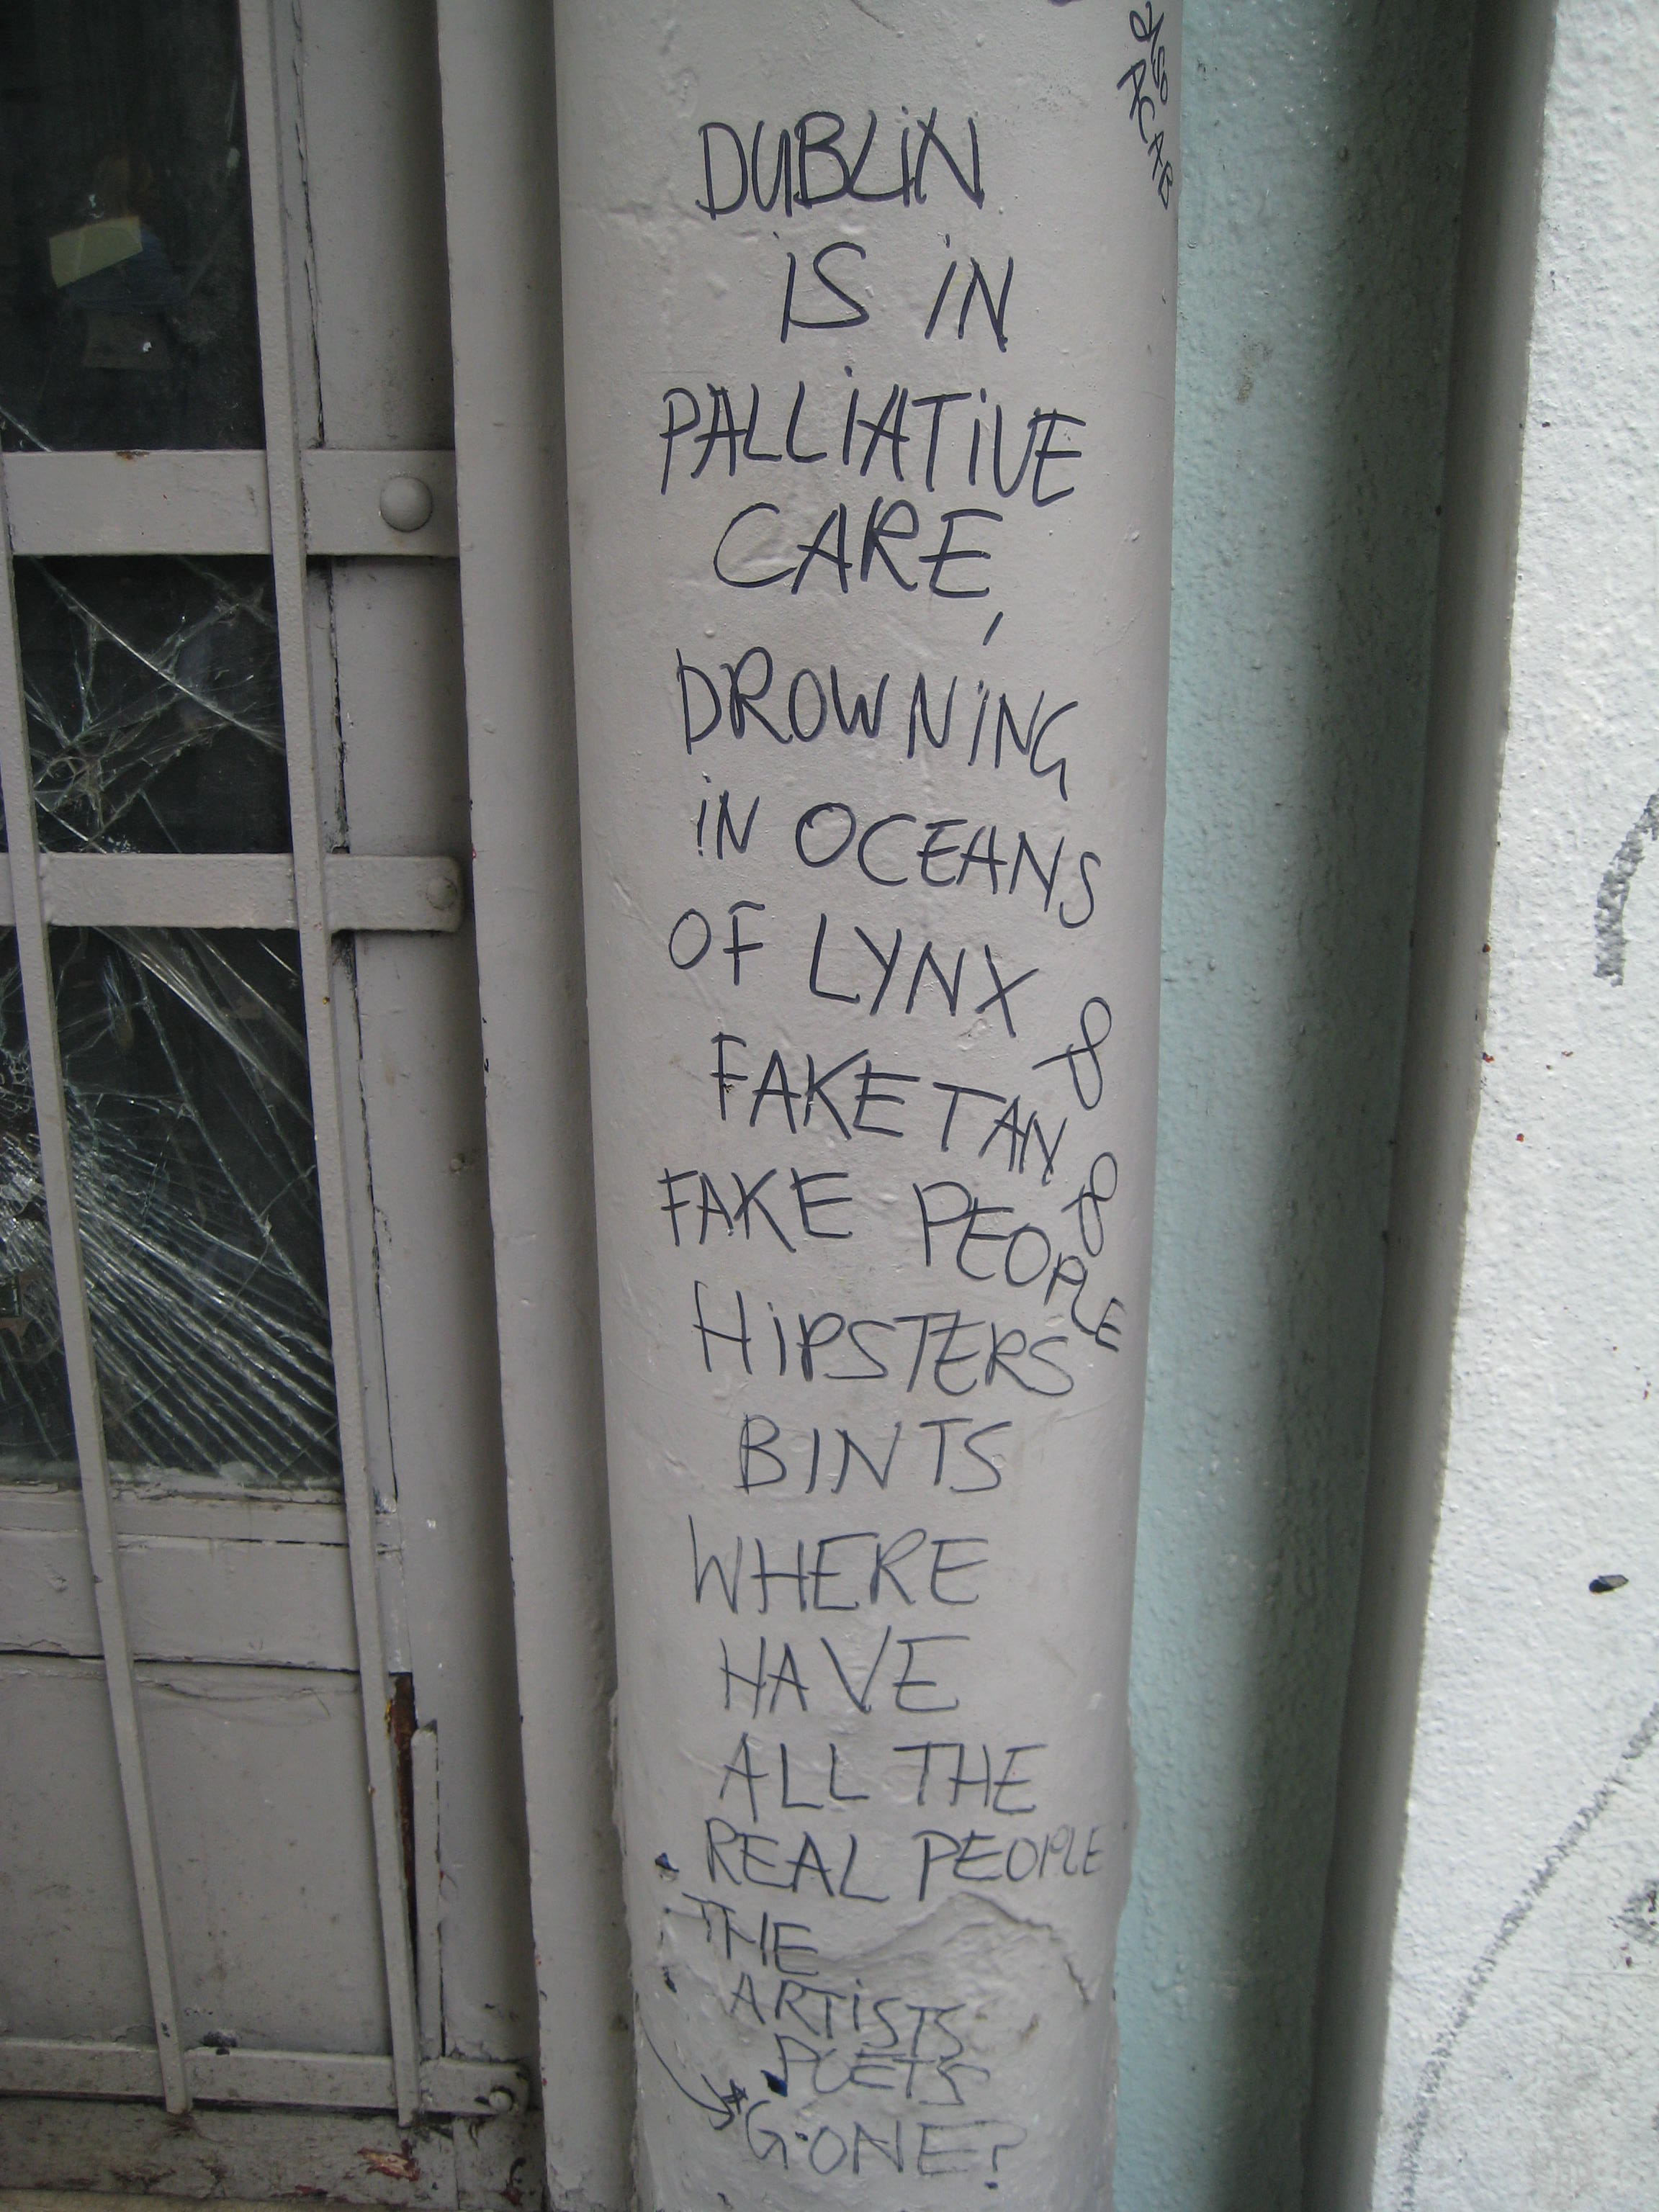 also
ACAB
DUBLiN
iS iN
PALLiATiVE
CARE,
DROWNiNG
iN OCEANS
OF LYNX &
FAKE TAN &
FAKE PEOPLE
HiPSTERS
BINTS
WHERE
HAVE
ALL THE
REAL PEOPLE
THE
ARTiSTS
POETS
GONE?